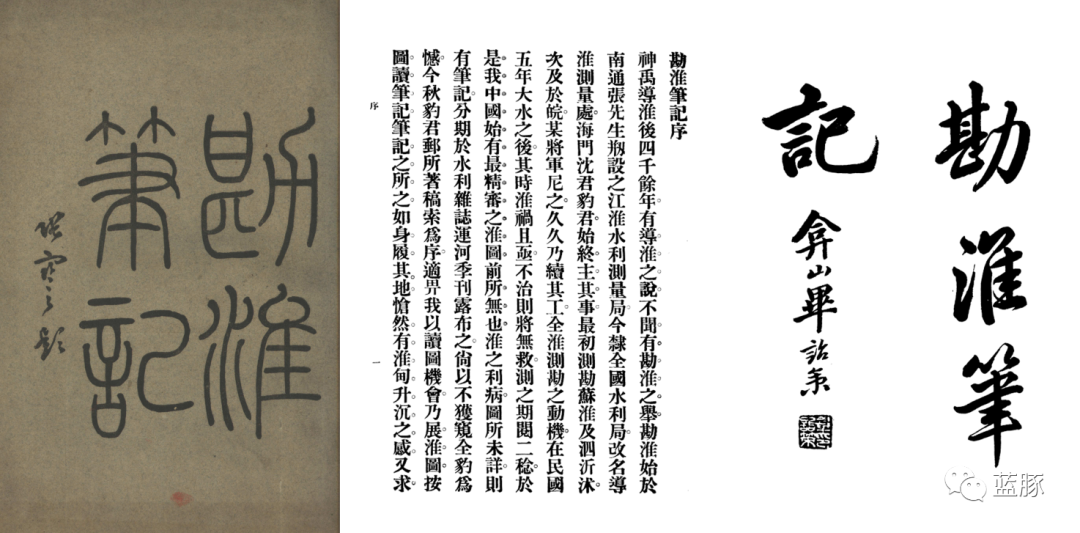 勘淮
筆記
勘淮筆記序
神禹導淮後四千餘年有導淮之說不聞有勘淮之舉勘淮始於
南通張先生刱設之江淮水利測量局今隸全國水利局改名導
淮測量處海門沈君豹君始終主其事最初測勘蘇淮及泗沂沭
次及於皖某將軍尼之久久乃續其工全淮測勘之動機在民國
五年大水之後其時淮禍且亟不治則將無救測之期閱二稔於
是我中國始有最精審之淮圖前所無也淮之利病圖所未詳則
有筆記分期於水利雜誌運河季刊露布之尙以不獲窺全豹爲
憾今秋豹君郵所著稿索爲序適畀我以讀圖機會乃展淮圖按
圖讀筆記筆記之所之如身履其地愴然有淮甸升沉之感又求
序
一
勘淮筆
記
弇山畢詒策
蓝豚